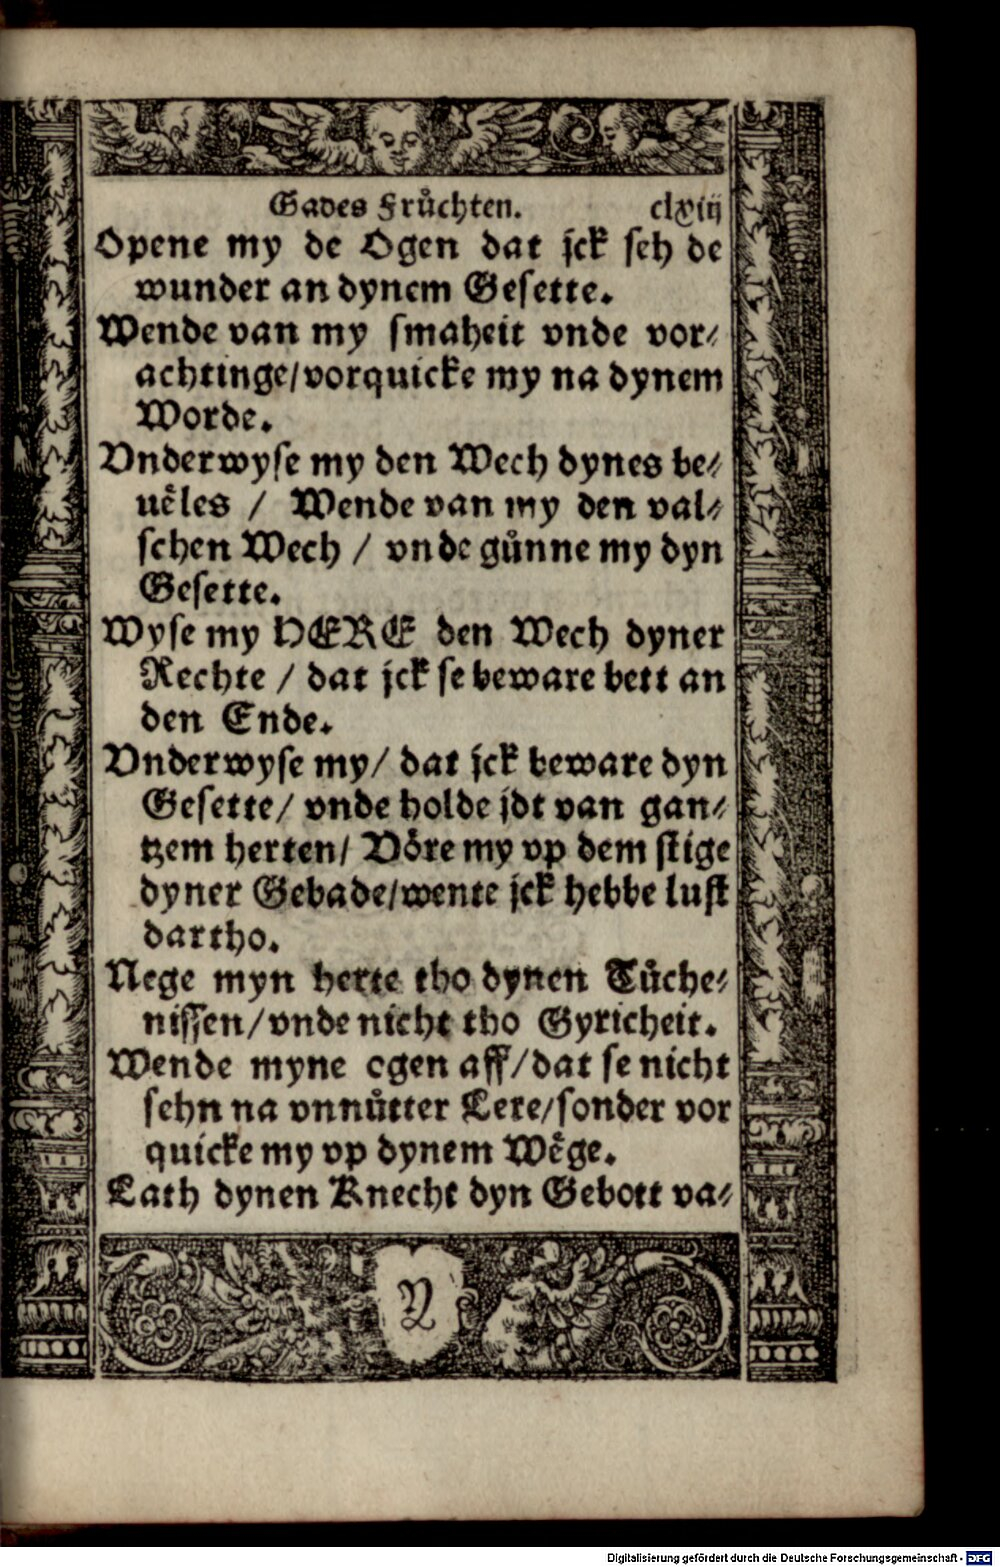 Gades Fruͤchten. clxiij
Opene my de Ogen dat jck seh de
wunder an dynem Gesette.
Wende van my smaheit vnde vor⸗
achtinge/vorquicke my na dynem
Worde.
Vnderwyse my den Wech dynes be⸗
ueͤles / Wende van my den val⸗
schen Wech / vnde guͤnne my dyn
Gesette.
Wyse my HERE den Wech dyner
Rechte / dat jck se beware bett an
den Ende.
Vnderwyse my/ dat jck beware dyn
Gesette/ vnde holde jdt van gan⸗
tzem herten/ Voͤre my vp dem stige
dyner Gebade/wente jck hebbe lust
dartho.
Nege myn herte tho dynen Tuͤche⸗
nissen/vnde nicht tho Gyricheit.
Wende myne ogen aff/dat se nicht
sehn na vnnuͤtter Lere/sonder vor
quicke my vp dynem Weͤge.
Lath dynen Knecht dyn Gebott va⸗
Y
Digitalisierung gefördert durch die Deutsche Forschungsgemeinschaft - DFG